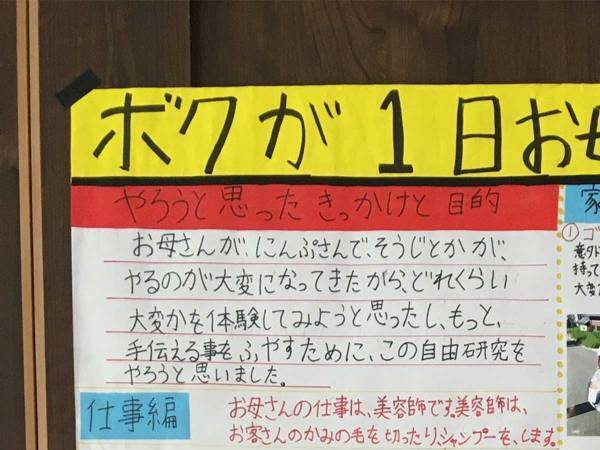 ボクが1日お
やろうと思ったきっかけと目的
お母さんが、にんぷさんで、そうじとかが、
やるのが大変になってきたがら、どれくらい
大変かを体験してみようと思ったし、もっと、
手伝える事を、ふやすために、この自由研究を
やろうと思いました。
仕事編
お母さんの仕事は、美容師です。美容師は、
お客さんのかみの毛を切ったり、シャンプーを、します。
家
①
意外
持って
大変